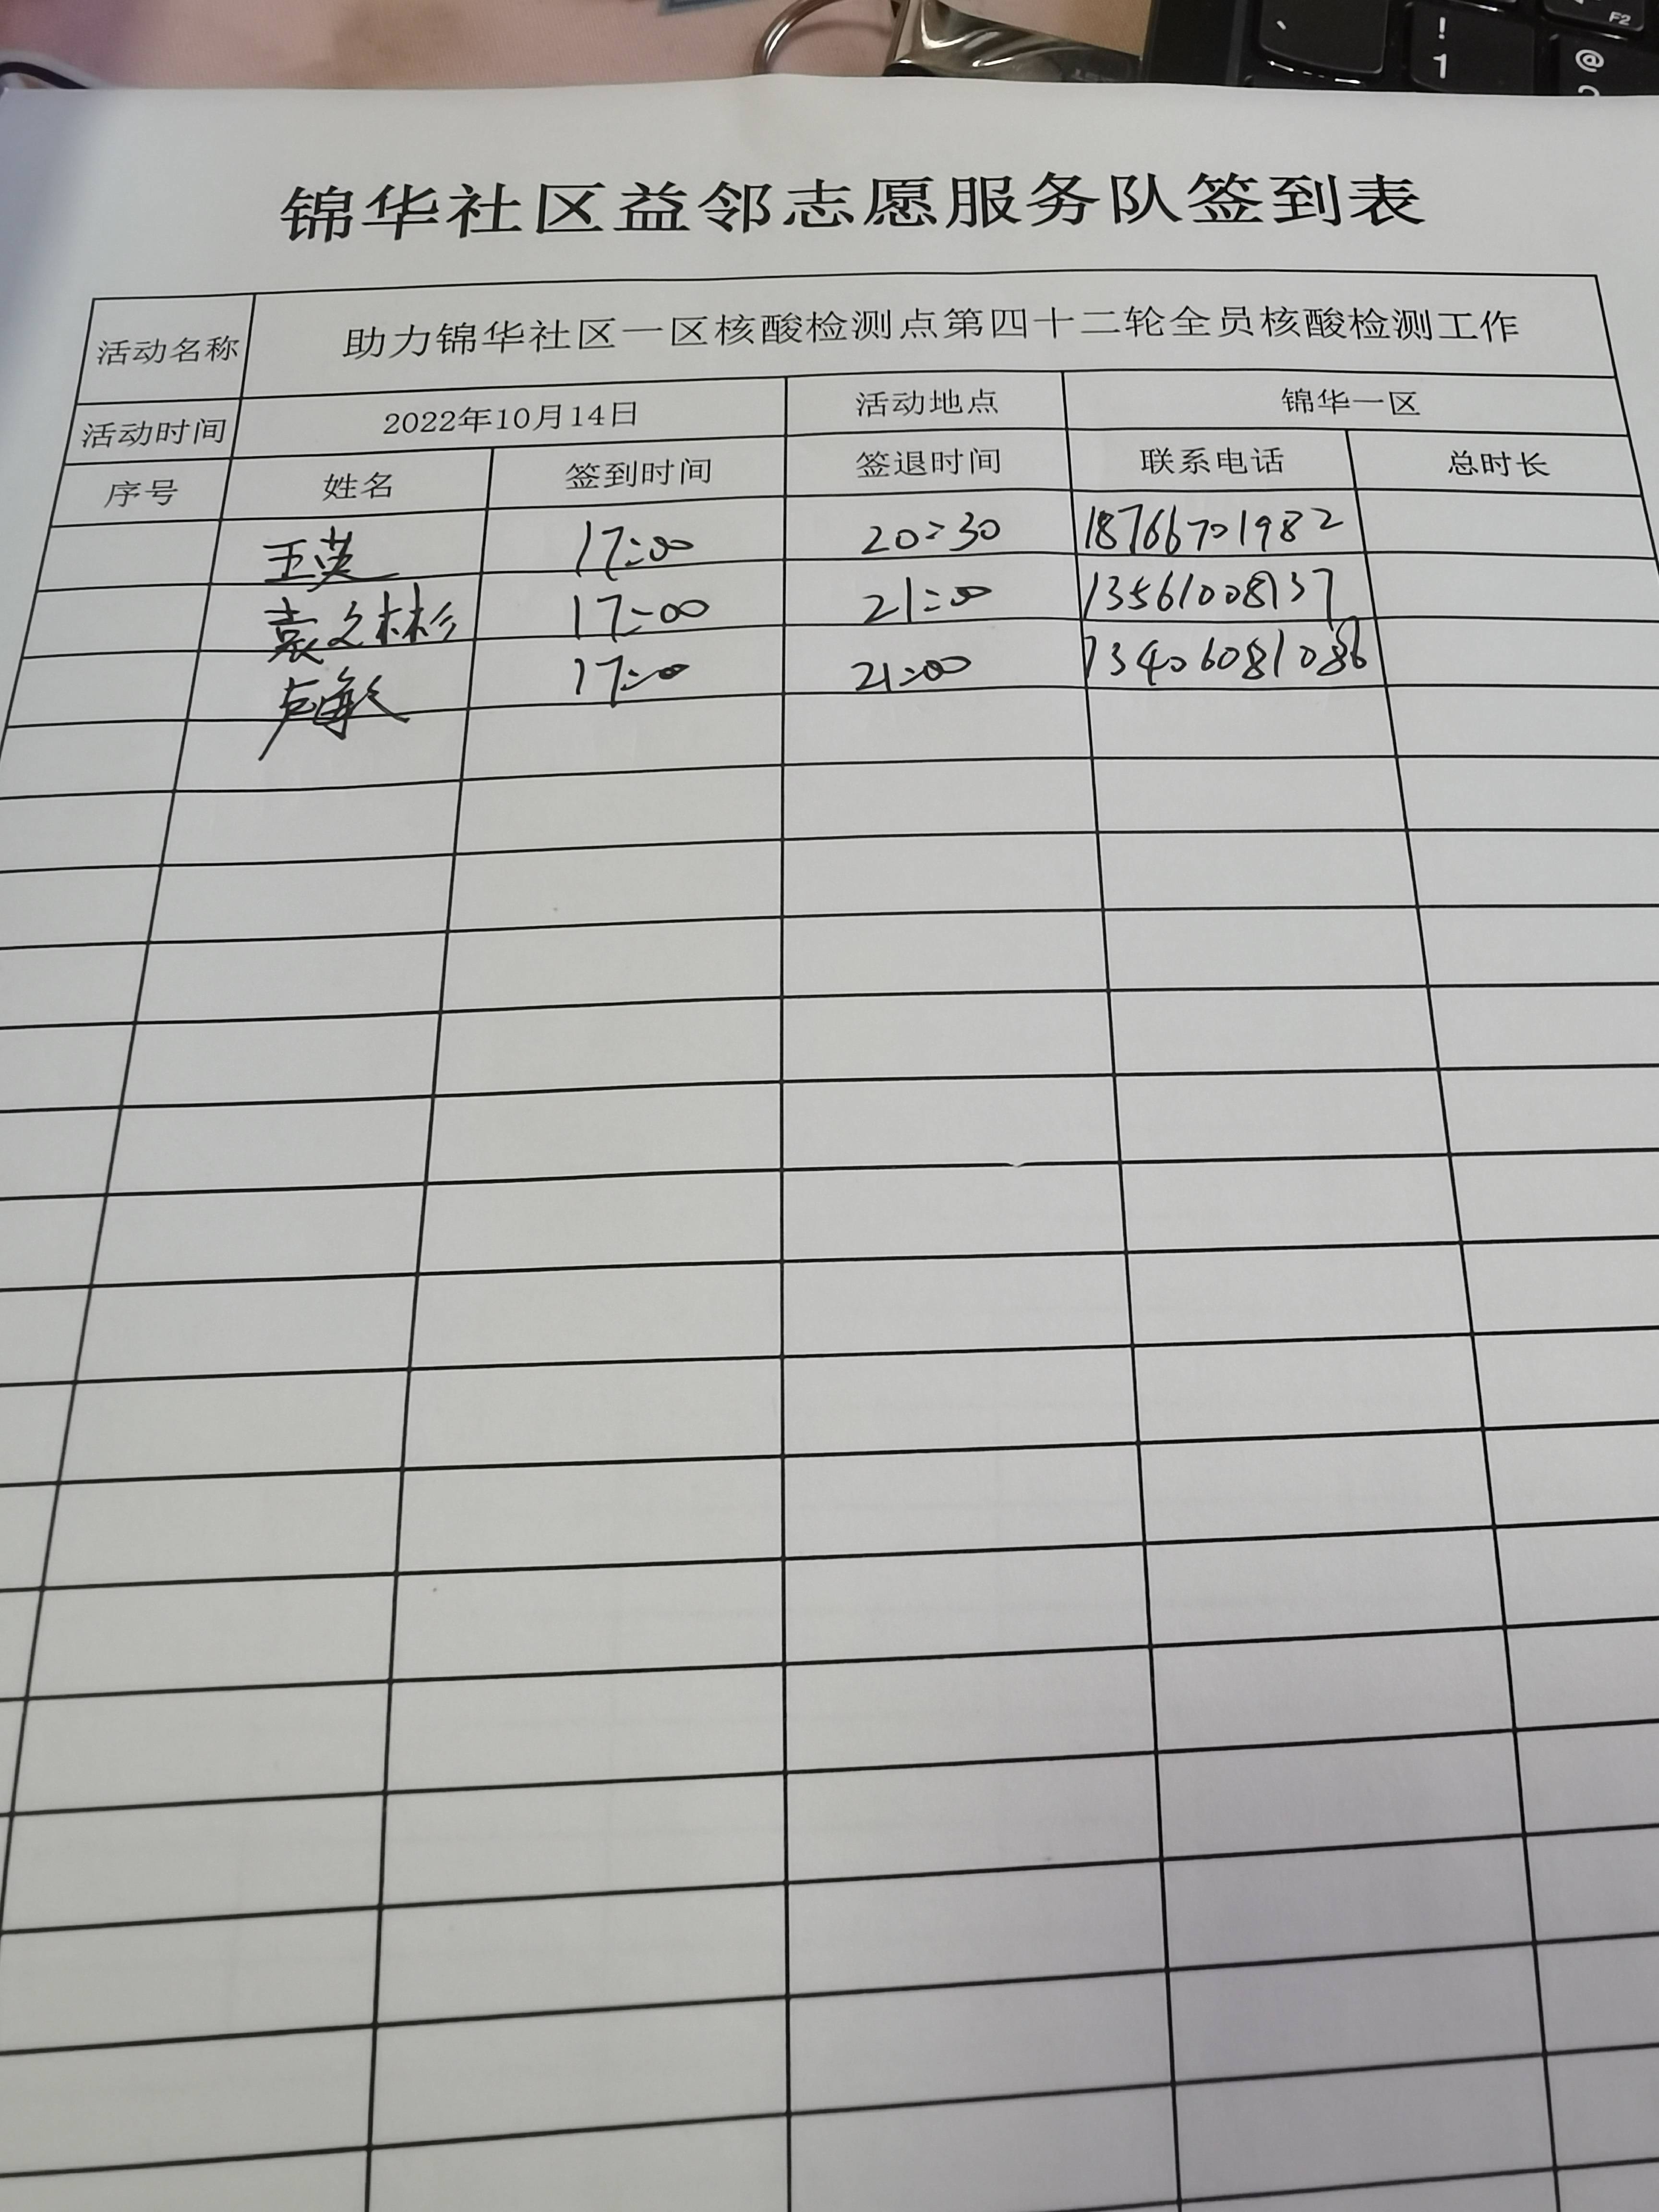 锦华社区益邻志愿服务队签到表
活动名称 助力锦华社区一区核酸检测点第四十二轮全员核酸检测工作
活动时间 2022年10月14日 活动地点 锦华一区
序号 姓名 签到时间 签退时间 联系电话 总时长
王英 17:00 20:30 18766701982
袁文彬 17:00 21:00 13561008137
卢敏 17:00 21:00 13406081086
F2
! 1
@